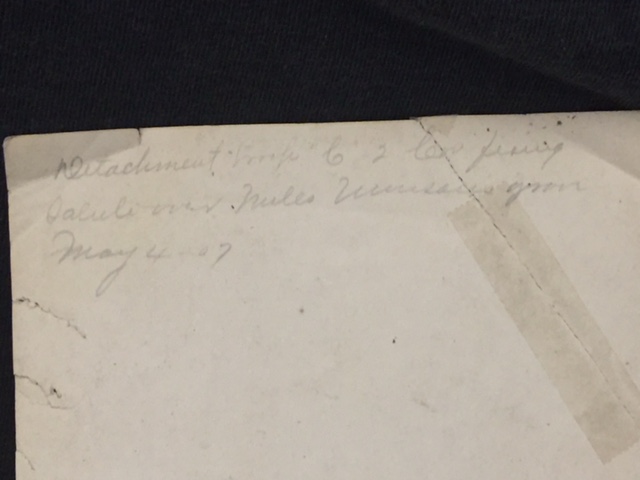 Detachment Troop C 2 Cav firing
Salute over Miles
May 4 07